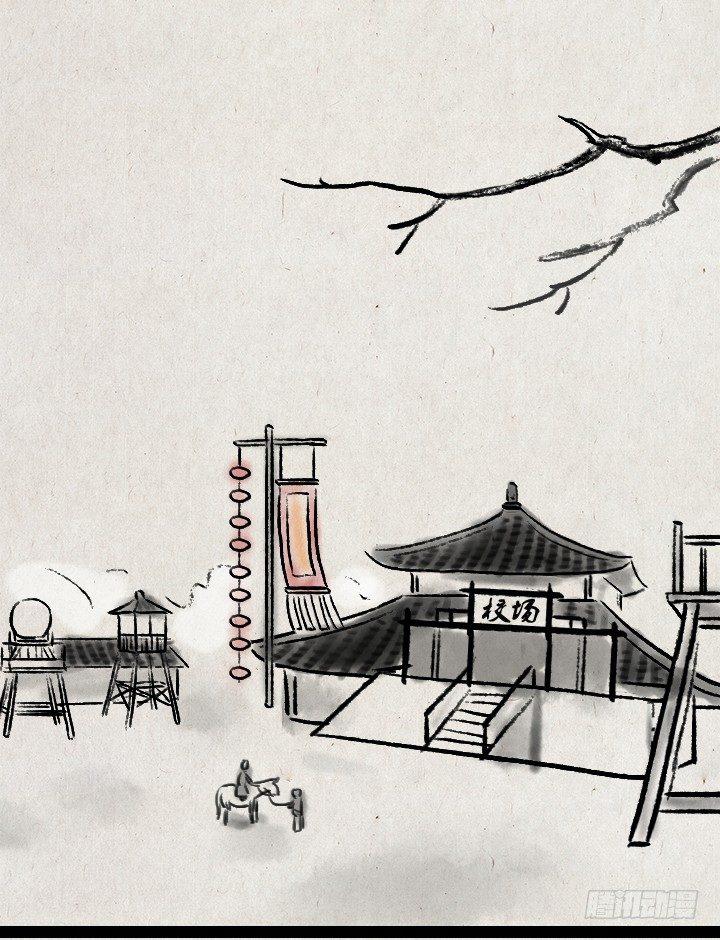 校场
腾讯动漫